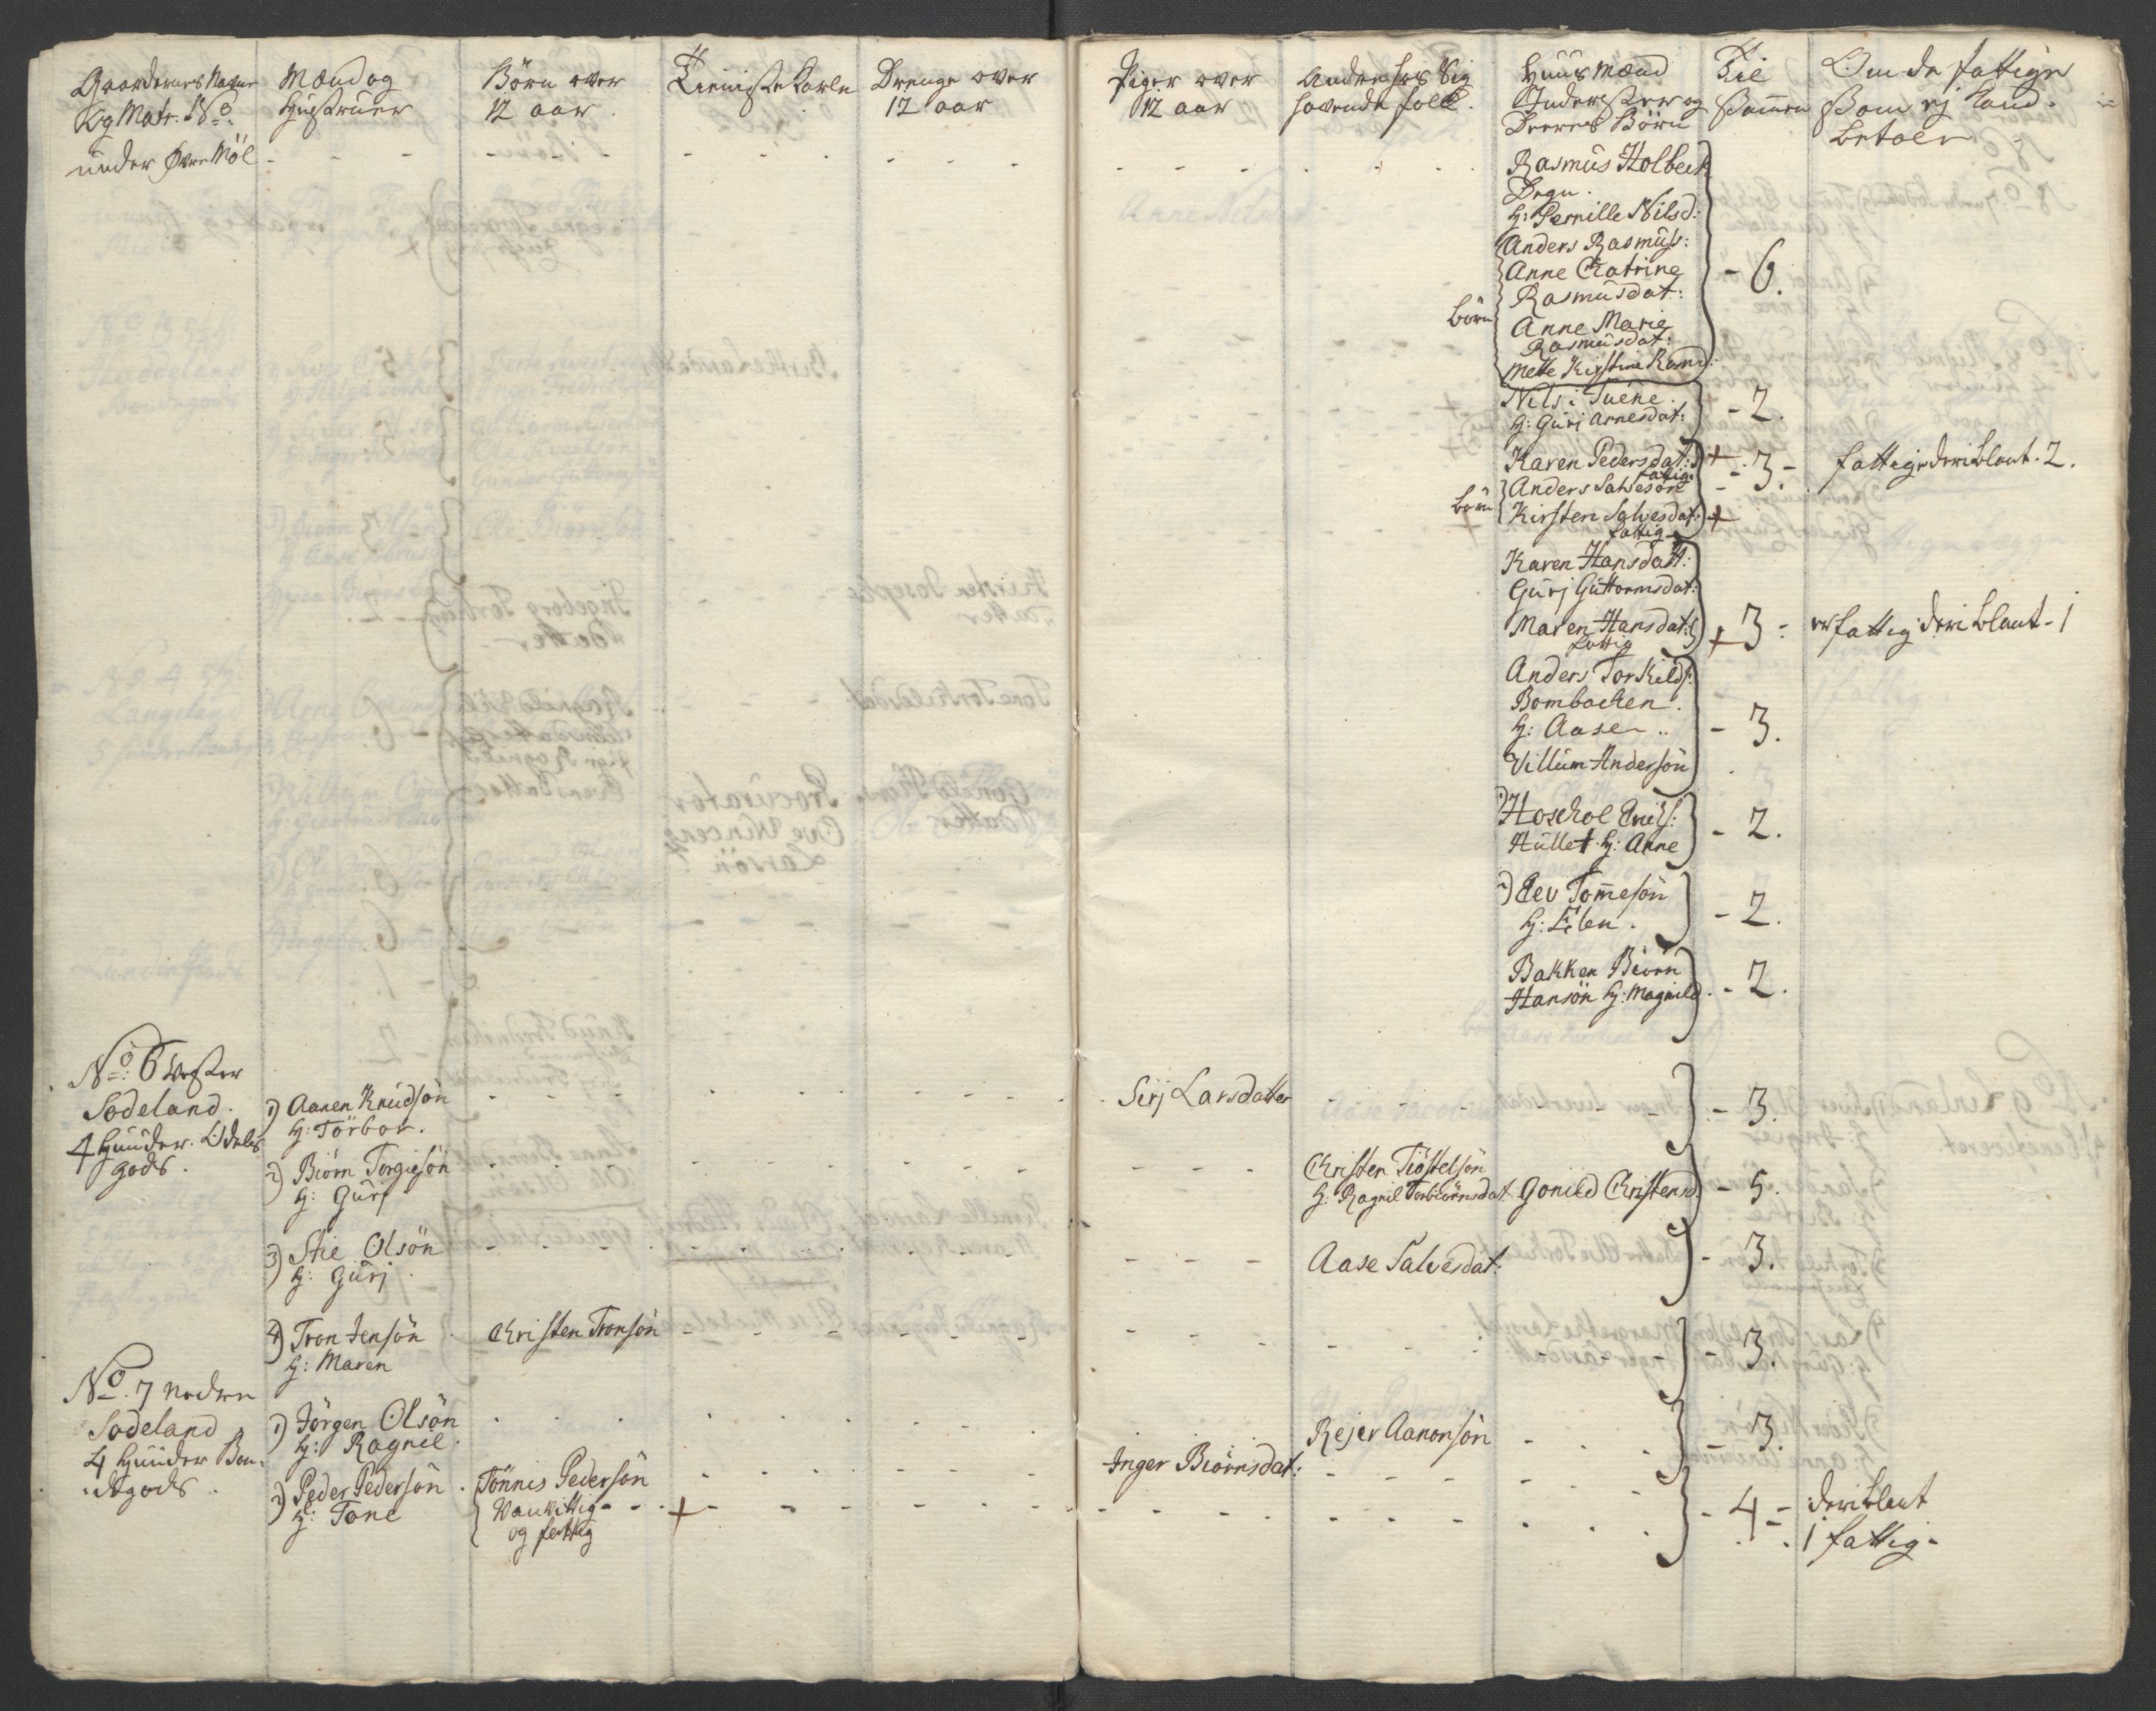 Gaardernes Nafne
Og Matr: No:
under Øvre Møl
Mænd og
Hustruer
Børn over
12 aar
Tieniste Karle
Drenge over
12 aar
Piger over
12 aar
Andre hos Sig
havende folk.
Huus Mænd
Inderster og
Deres Børn
Til
Sammen
Om de fattige
Som ej kand
betale
Rasmus Holbeck
Degn.
H: Pernille Nilsd:
Anders Rasmuss:
Anne Catrine
Rasmusdat:
børn
Anne Marie
Rasmusdat:
Mette Kirstine Rasmd:
- 6.
Nils i Tuene.
H: Gurj Arnesdat:
- 2.
Karen Pedersdat: +
fattig
børn Anders Salvesøn
Kirsten Salvesdat: +
fattig
- 3 - fattige deriblant. 2.
Karen Hansdatt:
Gurj Guttormsdat:
Maren Hansdat: +
fattig
3 - er fattig deriblant - 1
Anders Torkilds:
Bombachen.
H: Aase ..
Villum Andersøn
- 3.
1) Hoschol Erichs:
Hullet H: Anne
- 2.
2) Elev Tommesøn
H: Elen.
- 2.
Bakken Biørn
Hansøn H: Magnild.
- 2.
No: 6 Vester
Sodeland.
4 Huuder. Odels
gods.
1) Aanen Knudsøn
H: Torbor.
Sirj Larsdatter
- 3.
2) Biørn Torgiesøn
H: Gurj
Christen Tiøstelsøn
H: Ragnil Torbiørnsdat. Gonild Christensd.
- 5.
3) Stie Olsøn
H: Gurj
Aase Salvesdat:
- 3.
4) Tron Jensøn
H: Maren
Christen Tronsøn
- 3.
No. 7 Nedre
Sodeland
4 Huuder Bon-
degods.
1) Jørgen Olsøn
H: Ragnil.
Rejer Aanonsøn
- 3.
2) Peder Pedersøn
H: Tone
Tønnis Pedersøn
Vanvittig - - +
og fattig
Inger Biørnsdat:
- 4 - deriblant
1 fattig -